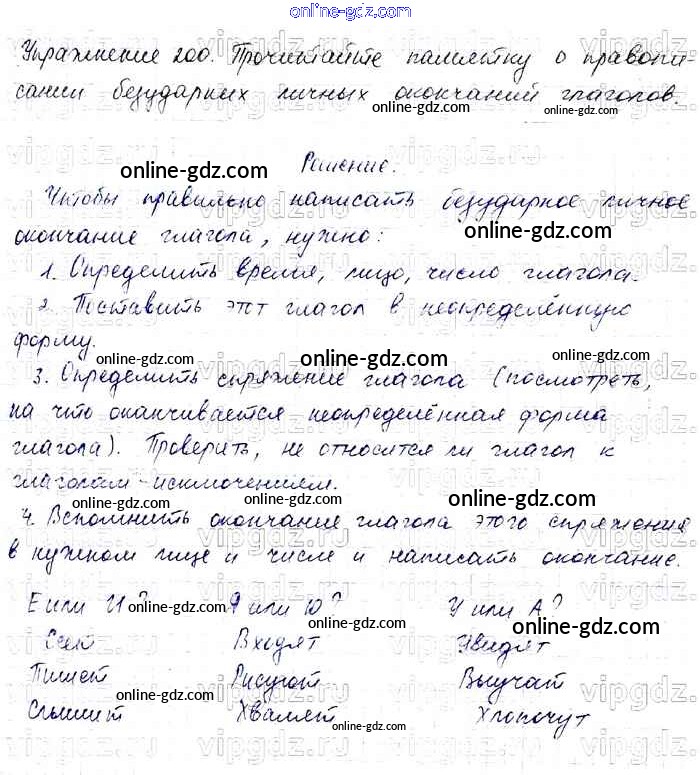 online-gdz.com
Упражнение 200. Прочитайте памятку о правопи-
сании безударных личных окончаний глаголов.
online-gdz.com
online-gdz.com
Решение.
Чтобы правильно написать безударное личное
online-gdz.com
окончание глагола, нужно:
online-gdz.com
1. Определить время, лицо, число глагола.
2. Поставить этот глагол в неопределённую
форму.
online-gdz.com online-gdz.com online-gdz.com
3. Определить спряжение глагола (посмотреть,
на что оканчивается неопределённая форма
глагола). Проверить, не относится ли глагол к
глаголам-исключениям.
online-gdz.com online-gdz.com
4. Вспомнить окончание глагола этого спряжения
в нужном лице и числе и написать окончание.
online-gdz.com
Е или И? Я или Ю? У или А?
online-gdz.com
Сеет Входят Увидят
Пишет Рисуют Выучат
online-gdz.com
Слышит Хвалят Хлопочут
online-gdz.com
vipgdz.ru